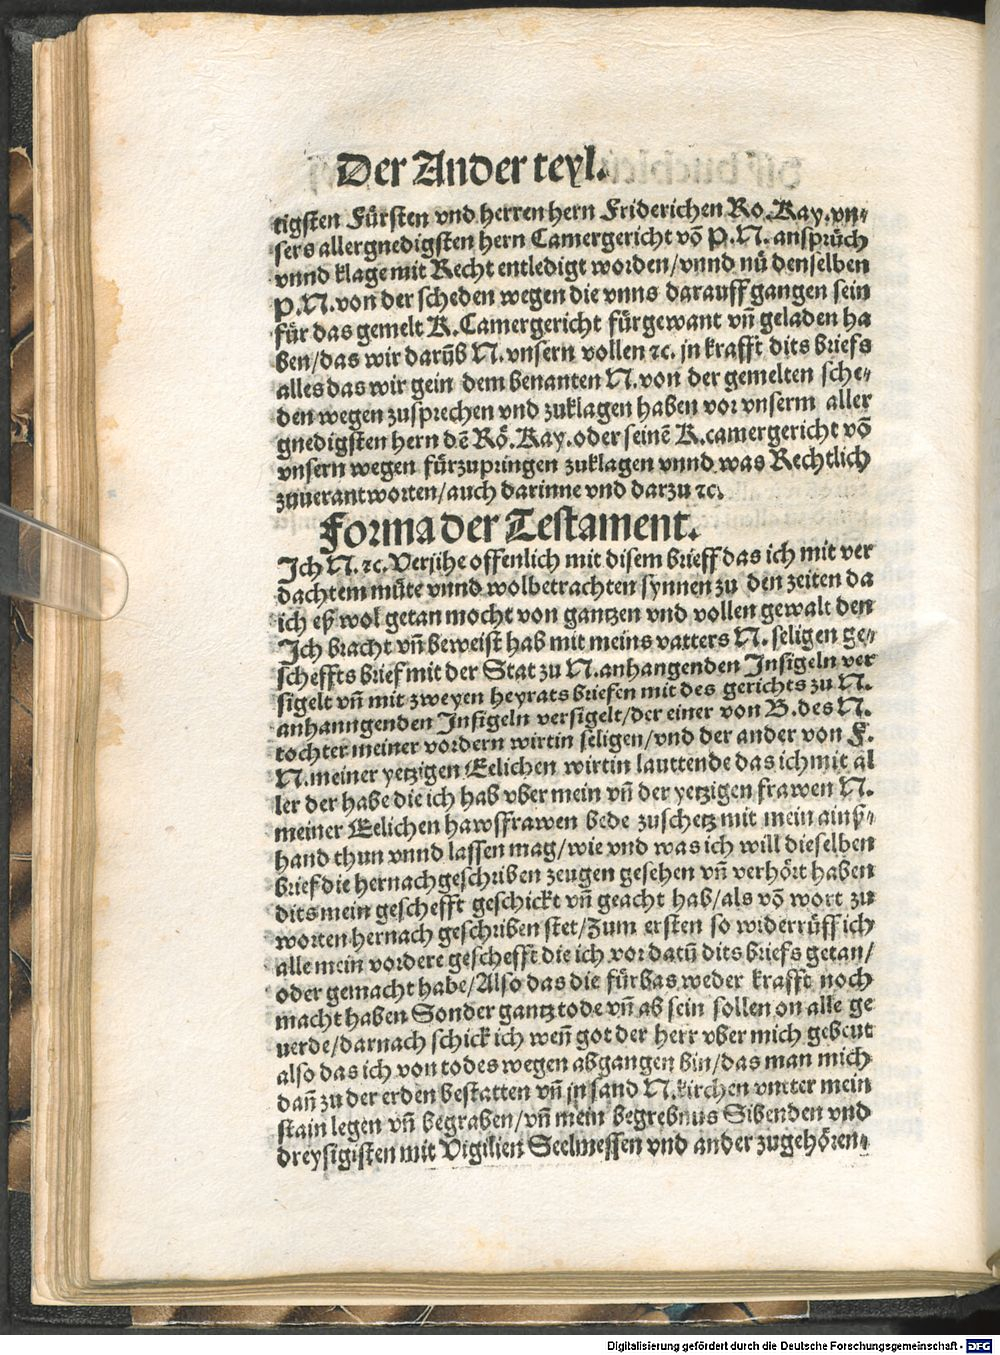 Der Ander teyl.
tigsten Fürsten vnd herren hern Friderichen Ro. Kay. vn⸗
sers allergnedigsten hern Camergericht võ P. N. ansprüch
vnnd klage mit Recht entledigt worden/vnnd nũ denselben
P. N. von der scheden wegen die vnns darauff gangen sein
für das gemelt K. Camergericht fürgewant vñ geladen ha
ben/das wir darũb N. vnsern vollen ⁊c. jn krafft dits briefs
alles das wir gein dem benanten N. von der gemelten sche⸗
den wegen zusprechen vnd zuklagen haben vor vnserm aller
gnedigsten hern dẽ Rö. Kay. oder seinẽ K. camergericht võ
vnsern wegen fürzupringen zuklagen vnnd was Rechtlich
zuuerantworten/auch darinne vnd darzu ⁊c.
Forma der Testament.
Ich N. ⁊c. Versihe offenlich mit disem brieff das ich mit ver
dachtem müte vnnd wolbetrachten synnen zu den zeiten da
ich eß wol getan mocht von gantzen vnd vollen gewalt den
Ich bracht vñ beweist hab mit meins vatters N. seligen ge⸗
scheffts brief mit der Stat zu N. anhangenden Insigeln ver
sigelt vñ mit zweyen heyrats briefen mit des gerichts zu N.
anhanngenden Insigeln versigelt/der einer von B. des N.
tochter meiner vordern wirtin seligen/vnd der ander von F.
N. meiner yetzigen Eelichen wirtin lauttende das ich mit al
ler der habe die ich hab vber mein vñ der yetzigen frawen N.
meiner Eelichen hawsfrawen bede zuschetz mit mein ainß⸗
hand thun vnnd lassen mag/wie vnd was ich will dieselben
brief die hernachgeschriben zeugen gesehen vñ verhört haben
dits mein geschefft geschickt vñ geacht hab/als võ wort zu
worten hernach geschriben stet/Zum ersten so widerrüff ich
alle mein vordere geschefft die ich vor datũ dits briefs getan/
oder gemacht habe/Also das die fürbas weder krafft noch
macht haben Sonder gantz tode vñ ab sein sollen on alle ge
uerde/darnach schick ich weñ got der herr vber mich gebeut
also das ich von todes wegen abgangen bin/das man mich
dañ zu der erden bestatten vñ jn sand N. kirchen vntter mein
stain legen vñ begraben/vñ mein begrebnus Sibenden vnd
dreysigisten mit Vigilien Seelmessen vnd ander zugehören⸗
Digitalisierung gefördert durch die Deutsche Forschungsgemeinschaft - DFG